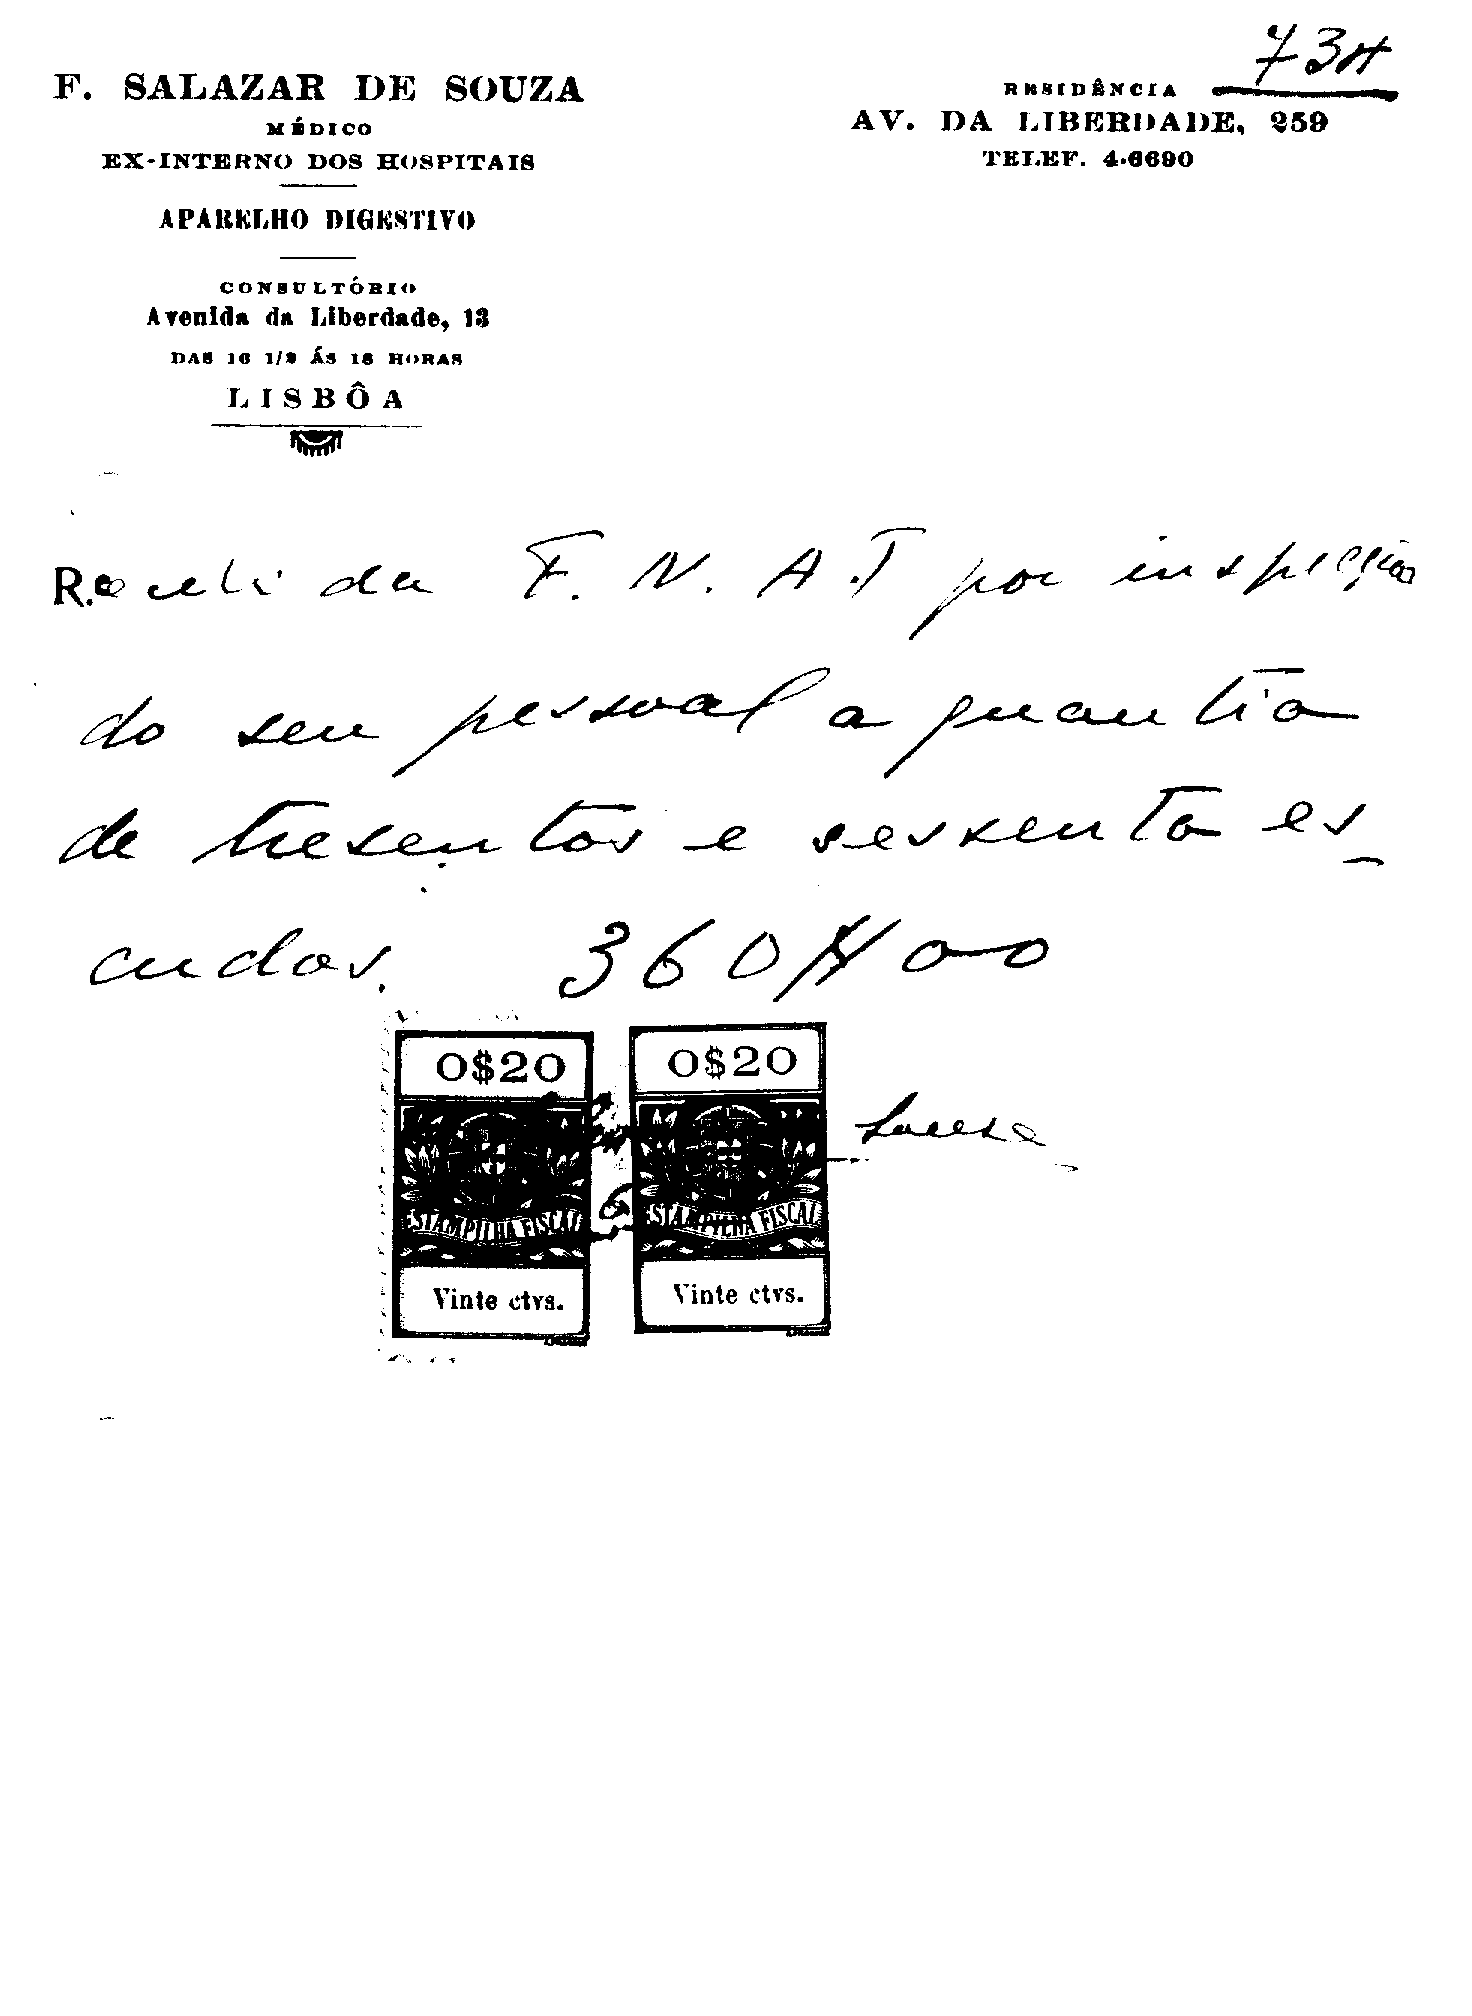 F. SALAZAR DE SOUZA
MÉDICO
EX-INTERNO DOS HOSPITAIS
APARELHO DIGESTIVO
CONSULTÓRIO
Avenida da Liberdade, 13
DAS 16 1/2 ÁS 18 HORAS
LISBÔA
RESIDÊNCIA
AV. DA LIBERDADE, 259
TELEF. 4.6690
R.
Recebi da F. N. A. T por inspecção
do seu pessoal a quantia
de tresentos e sessenta es-
cudos. 360$00
0$20 0$20
Sousa
ESTAMPILHA FISCAL ESTAMPILHA FISCAL
Vinte ctvs. Vinte ctvs.